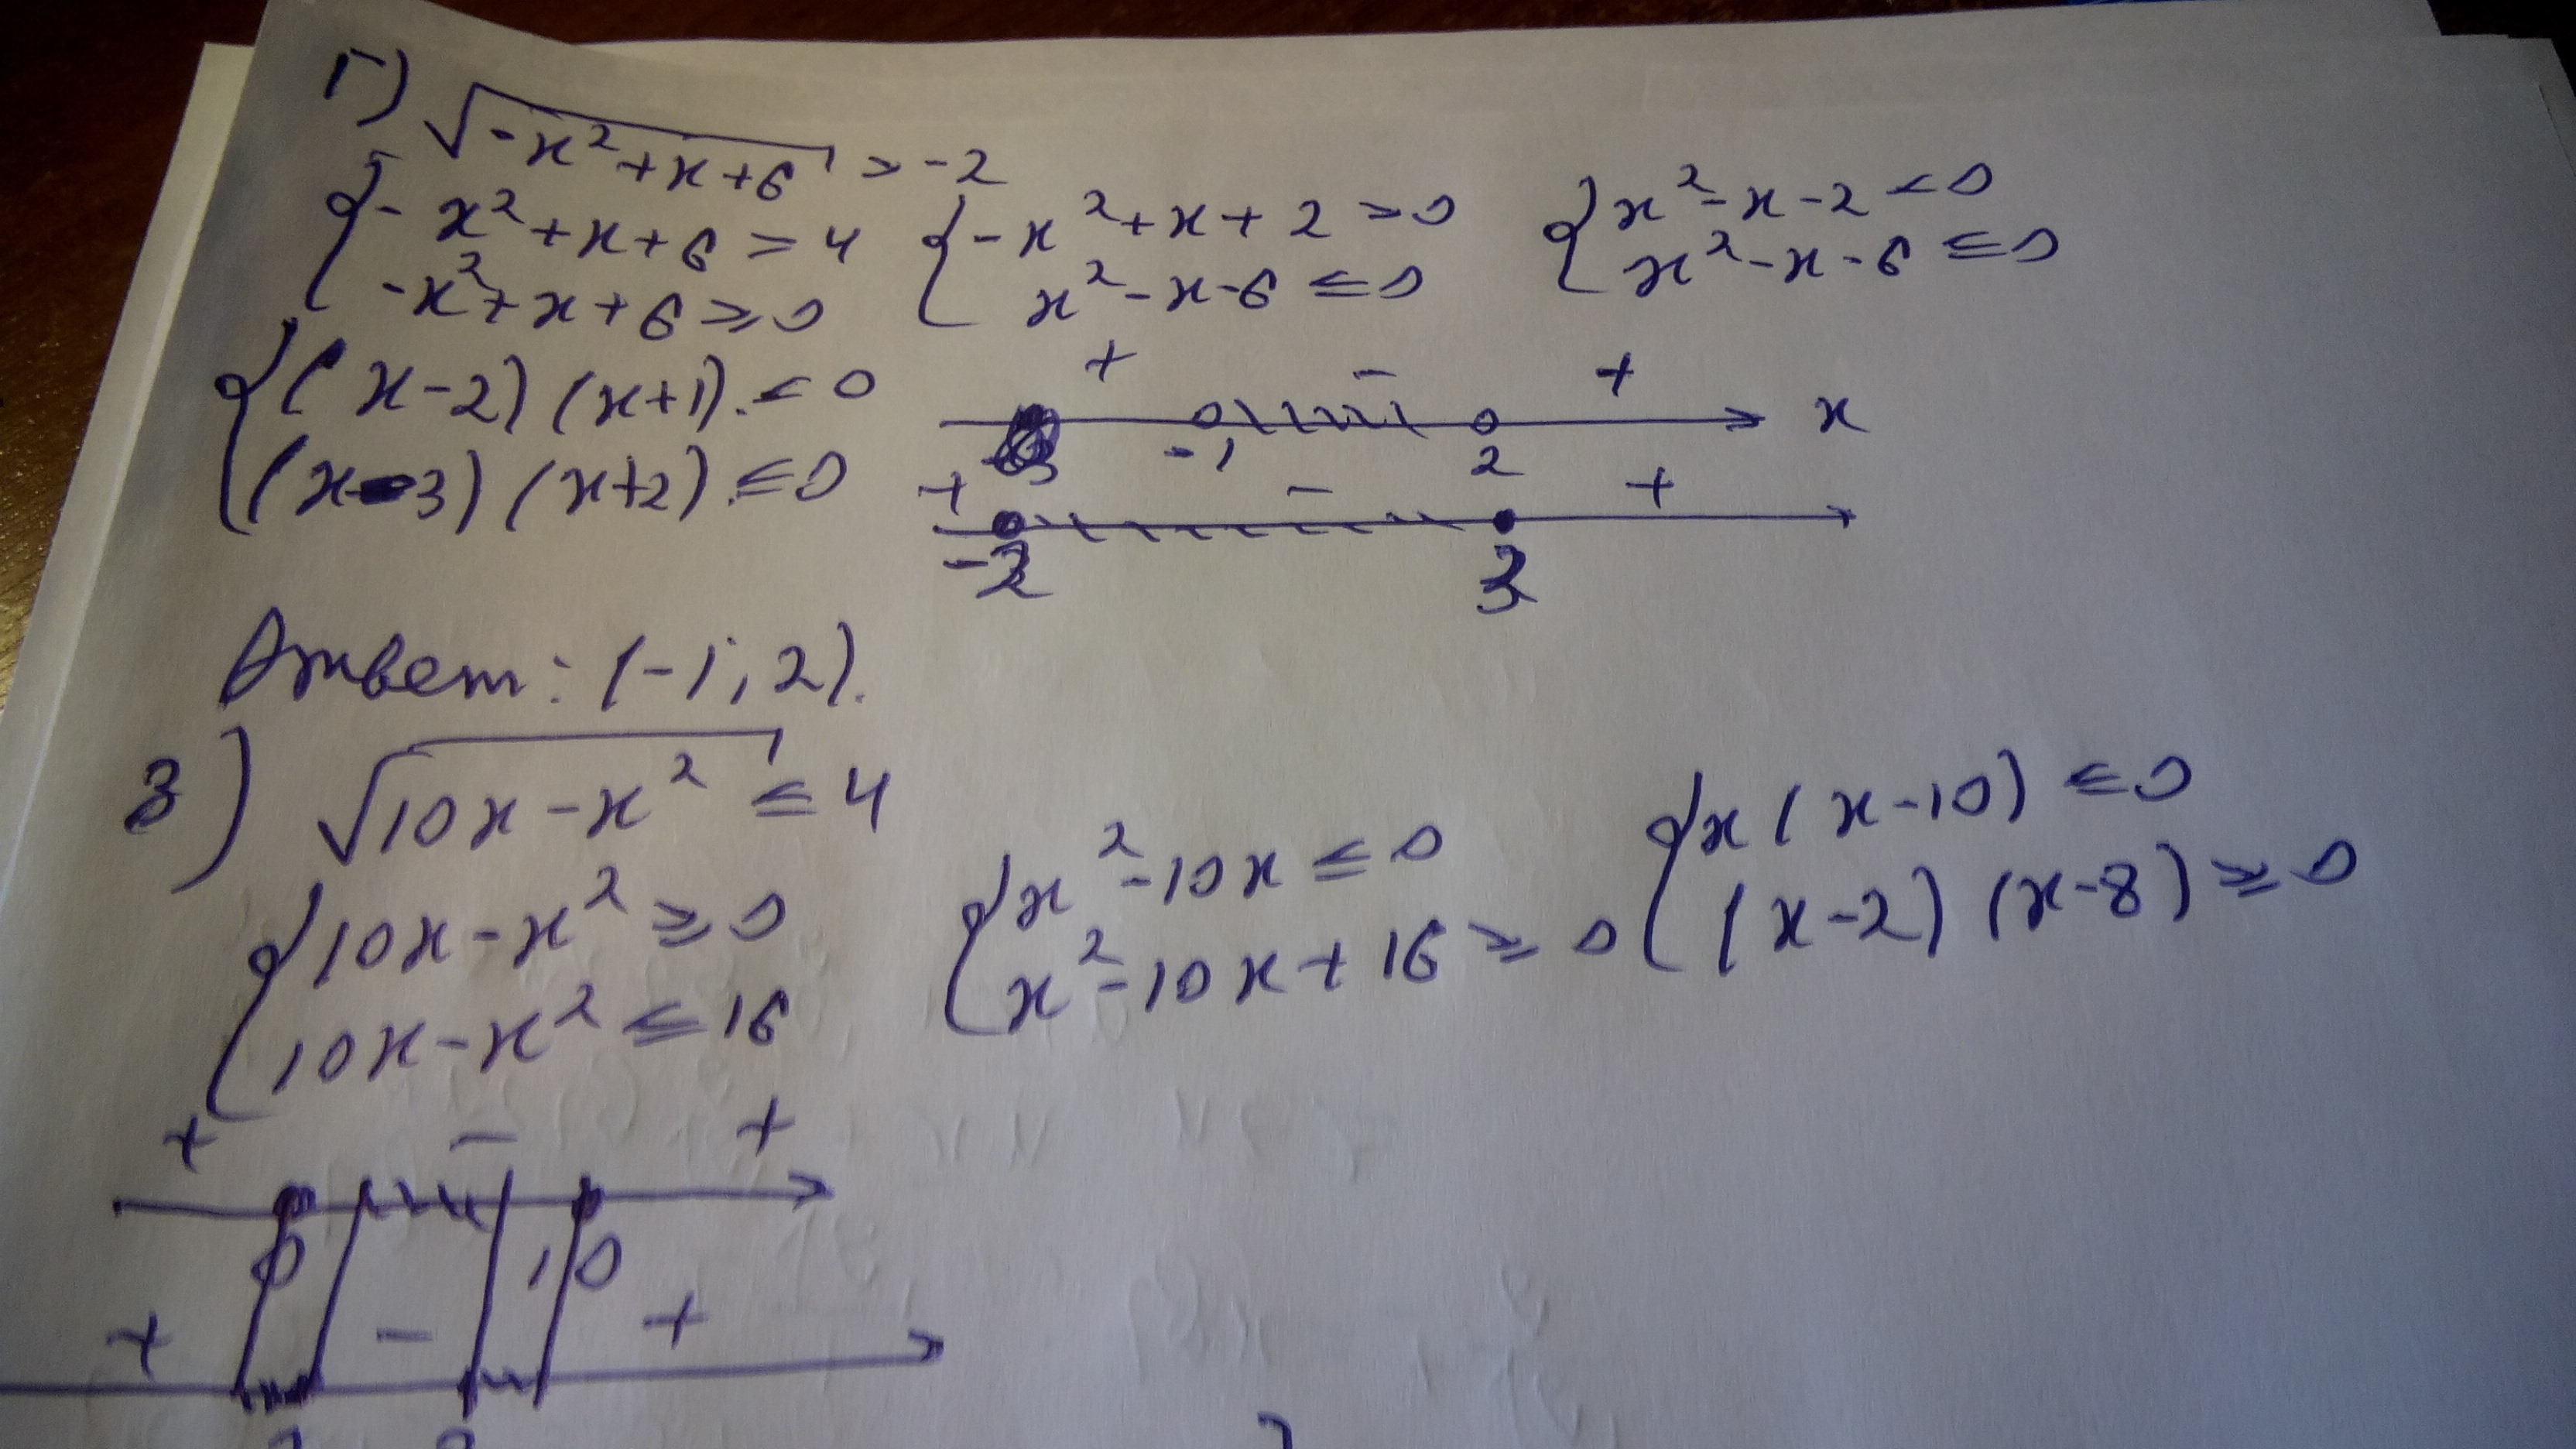 г) √(-x²+x+6) > -2
{ -x²+x+6 > 4 { -x²+x+2 > 0 { x²-x-2 < 0
-x²+x+6 ≥ 0 x²-x-6 ≤ 0 x²-x-6 ≤ 0
{ (x-2)(x+1) < 0
(x-3)(x+2) ≤ 0
+ - +
-1 2 x
+ - +
-2 3
Ответ: (-1; 2).
з) √(10x-x²) ≤ 4
{ 10x-x² ≥ 0 { x²-10x ≤ 0 { x(x-10) ≤ 0
10x-x² ≤ 16 x²-10x+16 ≥ 0 (x-2)(x-8) ≥ 0
+ - +
0 10
+ - +